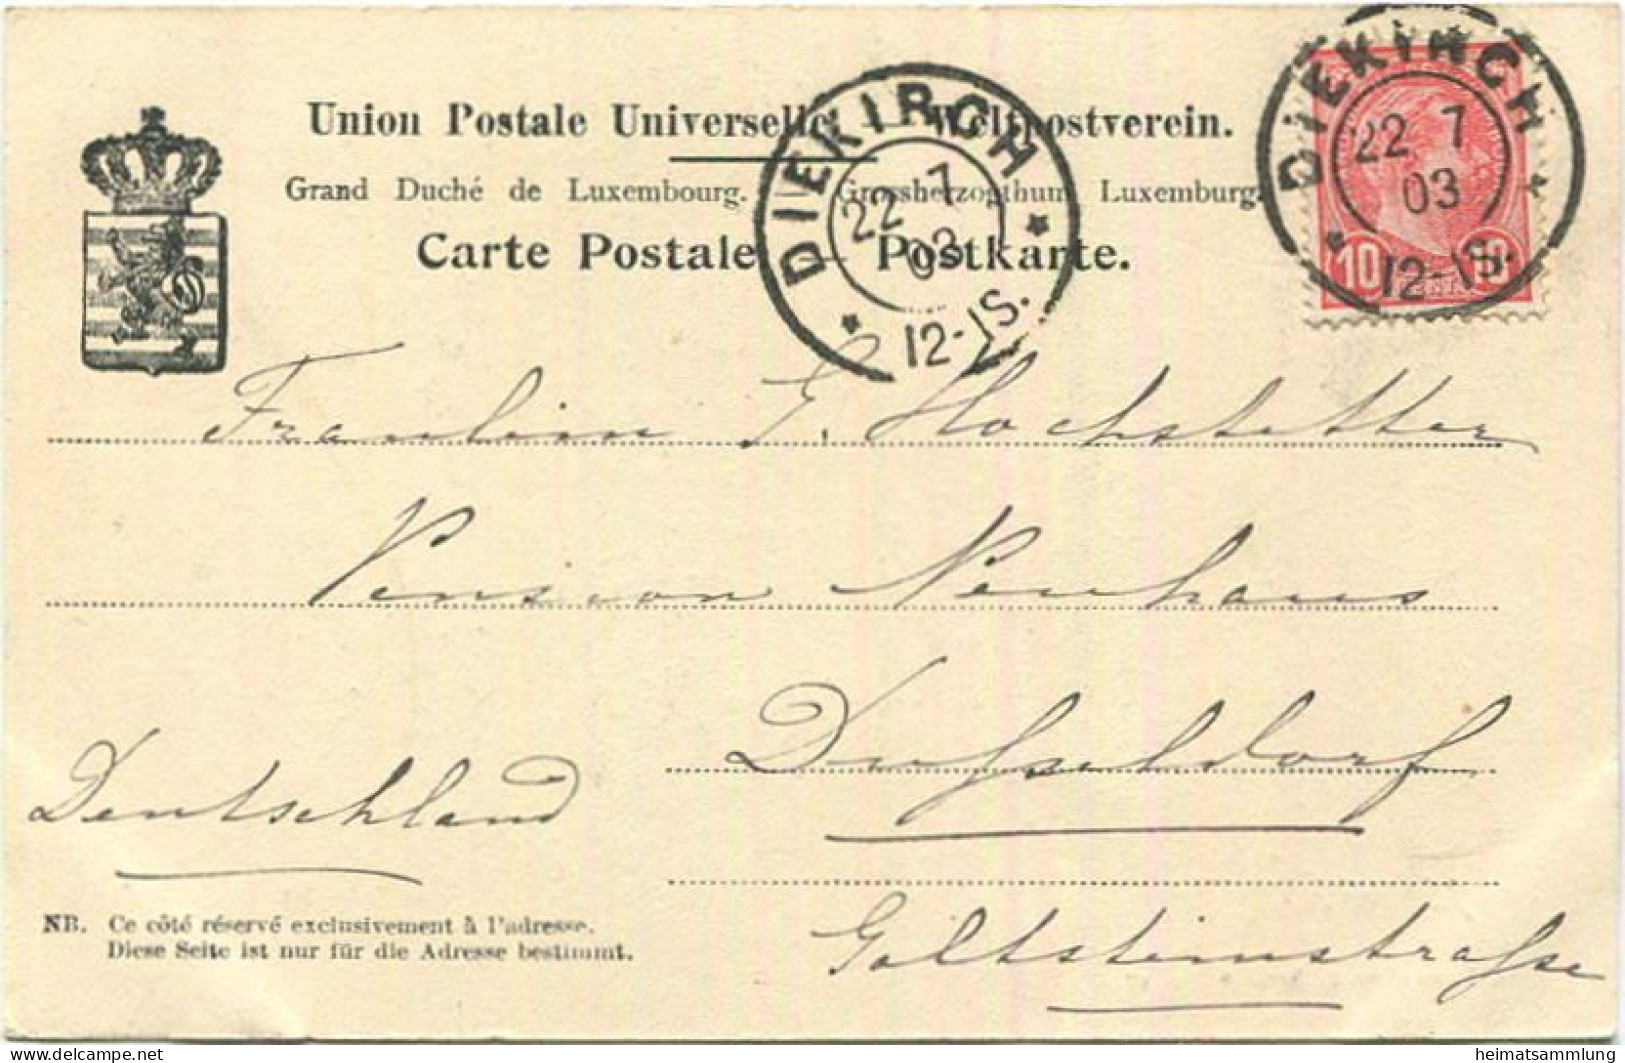 Union Postale Universelle — Weltpostverein.
Grand Duché de Luxembourg. — Grossherzogthum Luxemburg.
Carte Postale — Postkarte.
DIEKIRCH
22 7
03
12-1S.
DIEKIRCH
22 7
03
12-1S.
10 10
CENTIMES
Fraulein E. Hochstetter
Pension Neuhaus
Dußeldorf
Deutschland
Goltsteinstraße
NB. Ce côté réservé exclusivement à l'adresse.
Diese Seite ist nur für die Adresse bestimmt.
delcampe.net
heimatsammlung